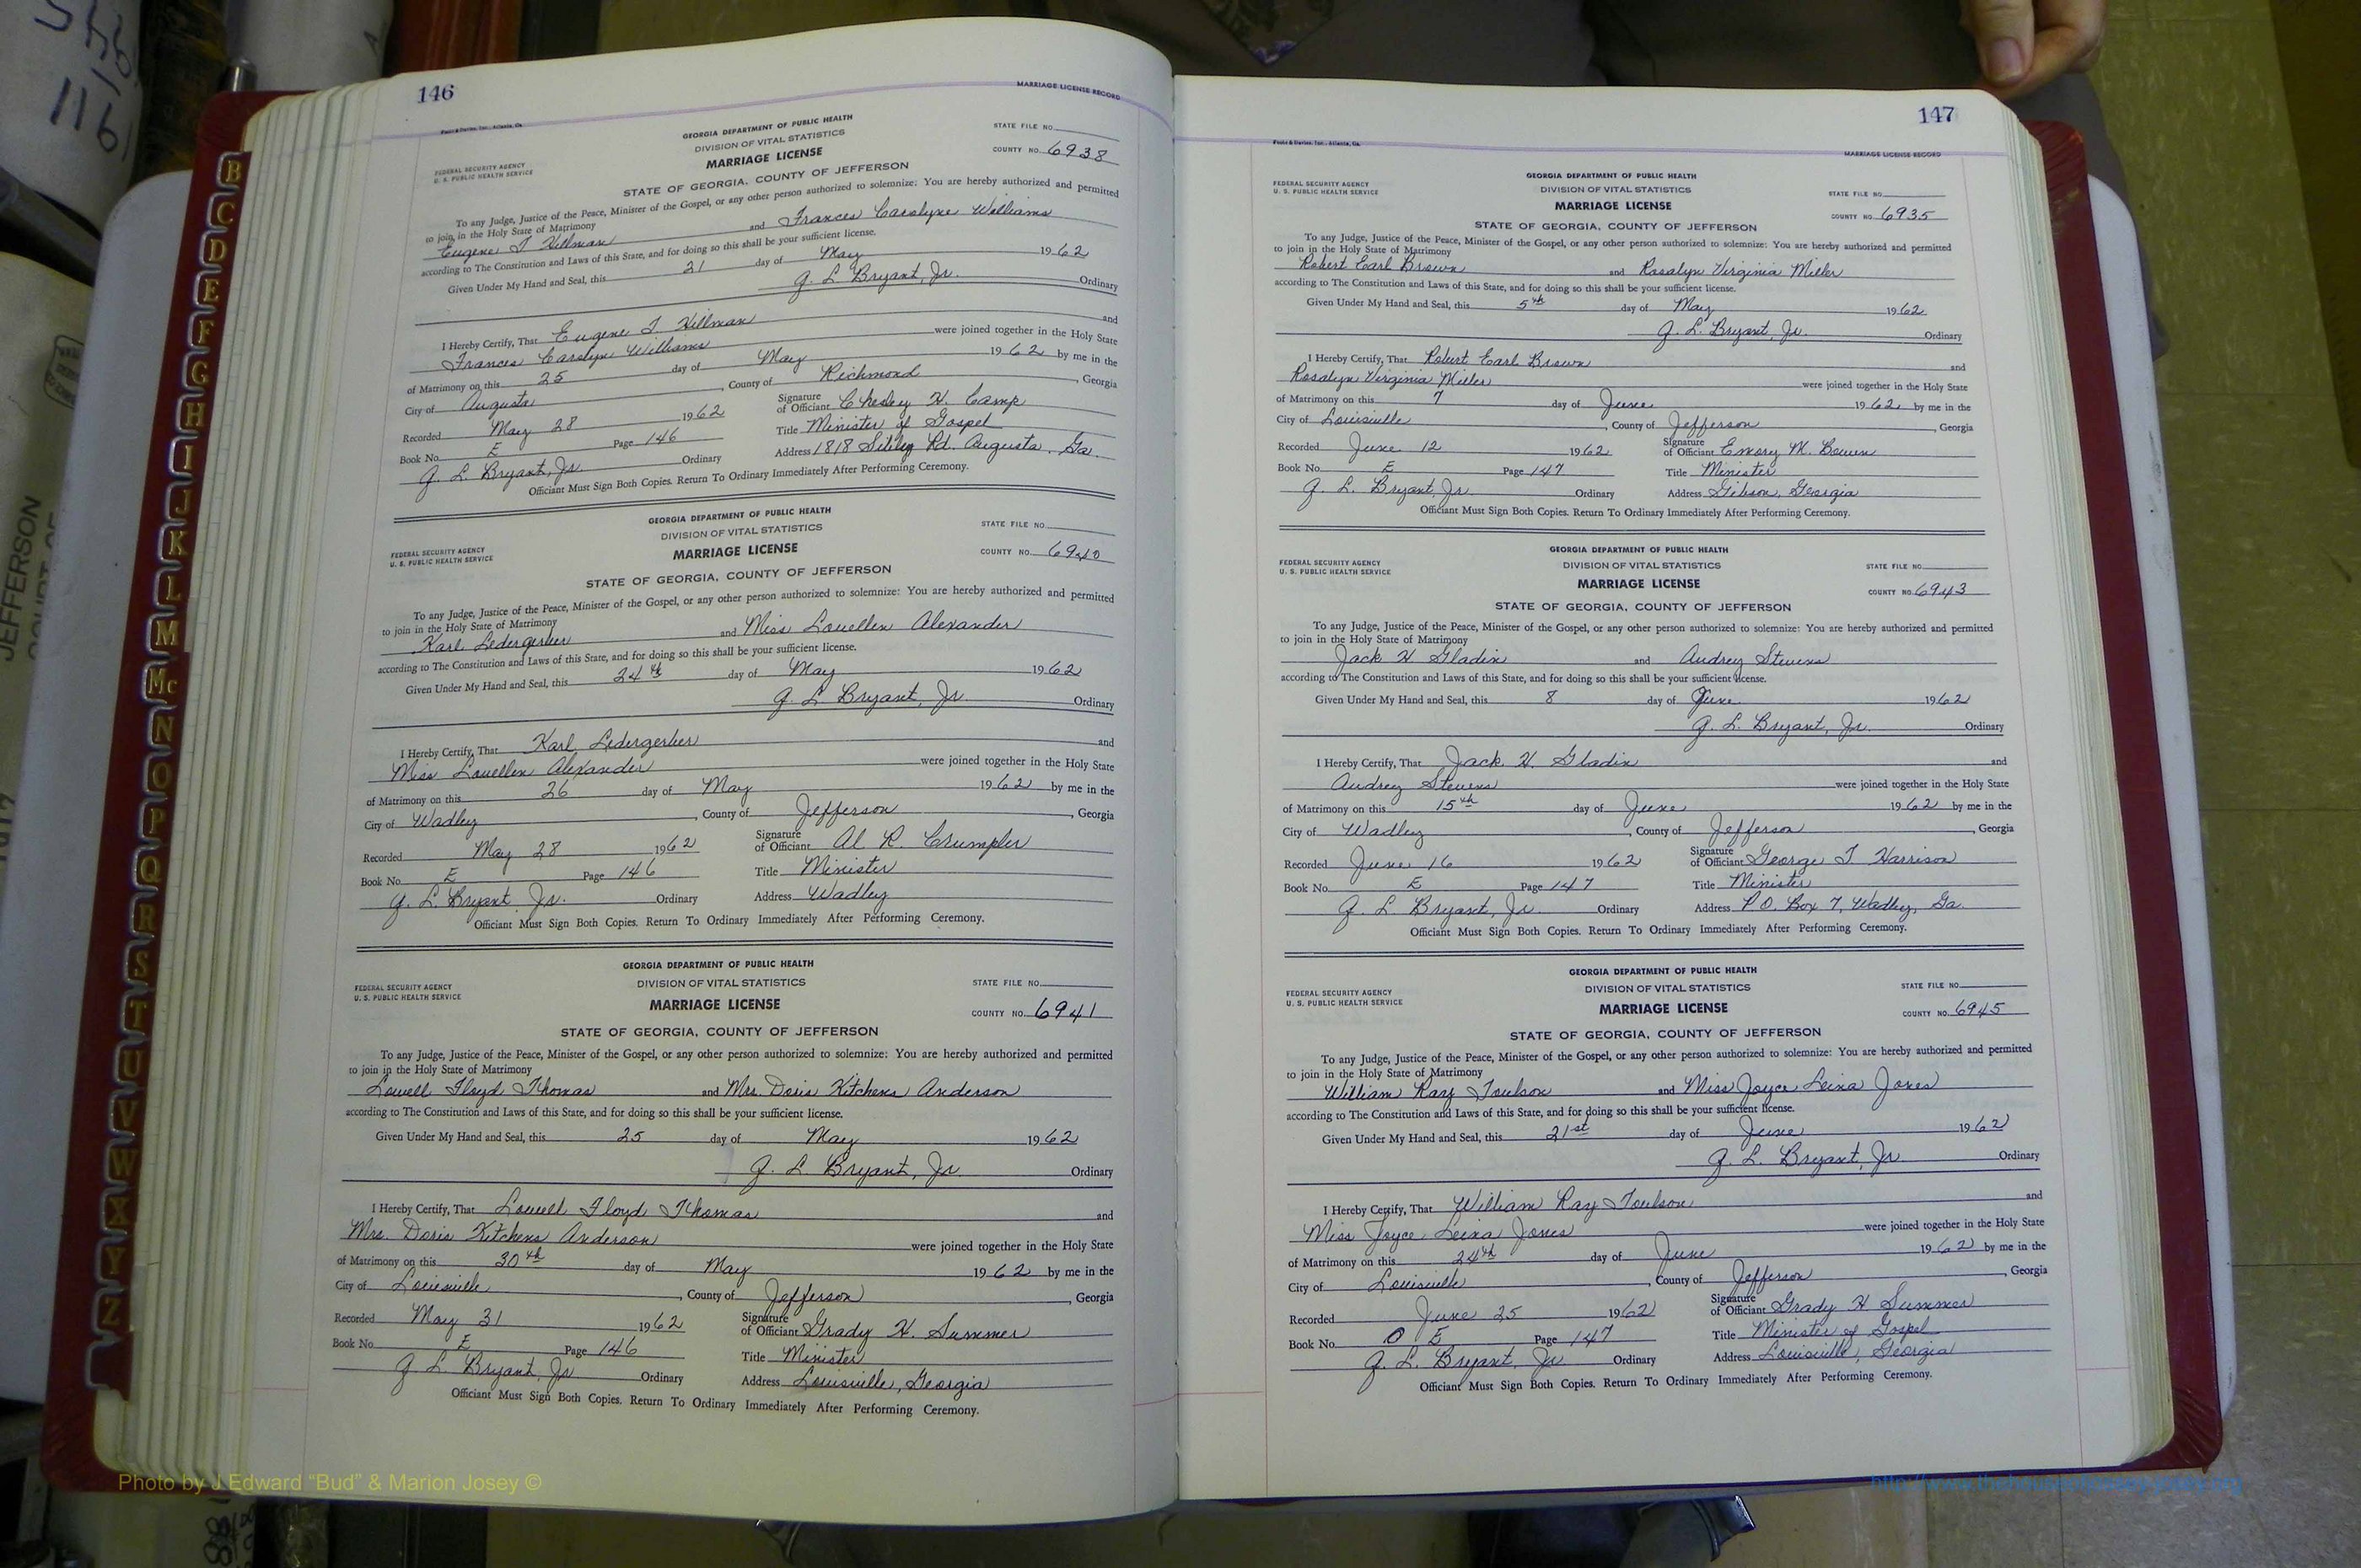 146
MARRIAGE LICENSE RECORD
Foote & Davies, Inc., Atlanta, Ga.
GEORGIA DEPARTMENT OF PUBLIC HEALTH
DIVISION OF VITAL STATISTICS
MARRIAGE LICENSE
FEDERAL SECURITY AGENCY
U. S. PUBLIC HEALTH SERVICE
STATE FILE NO.
COUNTY NO. 6938
STATE OF GEORGIA, COUNTY OF JEFFERSON
To any Judge, Justice of the Peace, Minister of the Gospel, or any other person authorized to solemnize: You are hereby authorized and permitted
to join in the Holy State of Matrimony
Eugene T Hillman and Frances Carolyne Williams
according to The Constitution and Laws of this State, and for doing so this shall be your sufficient license.
Given Under My Hand and Seal, this 21 day of May 1962
G. L. Bryant, Jr. Ordinary
I Hereby Certify, That Eugene T. Hillman and
Frances Carolyn Williams were joined together in the Holy State
of Matrimony on this 25 day of May 1962 by me in the
City of Augusta, County of Richmond, Georgia
Recorded May 28 1962
Signature of Officiant Chesley H. Camp
Book No. E Page 146
Title Minister of Gospel
G. L. Bryant, Jr. Ordinary
Address 1818 Sibley Rd. Augusta, Ga.
Officiant Must Sign Both Copies. Return To Ordinary Immediately After Performing Ceremony.
GEORGIA DEPARTMENT OF PUBLIC HEALTH
DIVISION OF VITAL STATISTICS
MARRIAGE LICENSE
FEDERAL SECURITY AGENCY
U. S. PUBLIC HEALTH SERVICE
STATE FILE NO.
COUNTY NO. 6940
STATE OF GEORGIA, COUNTY OF JEFFERSON
To any Judge, Justice of the Peace, Minister of the Gospel, or any other person authorized to solemnize: You are hereby authorized and permitted
to join in the Holy State of Matrimony
Karl Ledergerber and Miss Louellen Alexander
according to The Constitution and Laws of this State, and for doing so this shall be your sufficient license.
Given Under My Hand and Seal, this 24th day of May 1962
G. L. Bryant, Jr. Ordinary
I Hereby Certify, That Karl Ledergerber and
Miss Louellen Alexander were joined together in the Holy State
of Matrimony on this 26 day of May 1962 by me in the
City of Wadley, County of Jefferson, Georgia
Recorded May 28 1962
Signature of Officiant Al R. Crumpler
Book No. E Page 146
Title Minister
G. L. Bryant Jr. Ordinary
Address Wadley
Officiant Must Sign Both Copies. Return To Ordinary Immediately After Performing Ceremony.
GEORGIA DEPARTMENT OF PUBLIC HEALTH
DIVISION OF VITAL STATISTICS
MARRIAGE LICENSE
FEDERAL SECURITY AGENCY
U. S. PUBLIC HEALTH SERVICE
STATE FILE NO.
COUNTY NO. 6941
STATE OF GEORGIA, COUNTY OF JEFFERSON
To any Judge, Justice of the Peace, Minister of the Gospel, or any other person authorized to solemnize: You are hereby authorized and permitted
to join in the Holy State of Matrimony
Lowell Floyd Thomas and Mrs. Doris Kitchens Anderson
according to The Constitution and Laws of this State, and for doing so this shall be your sufficient license.
Given Under My Hand and Seal, this 25 day of May 1962
G. L. Bryant, Jr. Ordinary
I Hereby Certify, That Lowell Floyd Thomas and
Mrs. Doris Kitchens Anderson were joined together in the Holy State
of Matrimony on this 30th day of May 1962 by me in the
City of Louisville, County of Jefferson, Georgia
Recorded May 31 1962
Signature of Officiant Grady H. Summer
Book No. E Page 146
Title Minister
G. L. Bryant, Jr Ordinary
Address Louisville, Georgia
Officiant Must Sign Both Copies. Return To Ordinary Immediately After Performing Ceremony.
147
Foote & Davies, Inc., Atlanta, Ga.
MARRIAGE LICENSE RECORD
GEORGIA DEPARTMENT OF PUBLIC HEALTH
DIVISION OF VITAL STATISTICS
MARRIAGE LICENSE
FEDERAL SECURITY AGENCY
U. S. PUBLIC HEALTH SERVICE
STATE FILE NO.
COUNTY NO. 6935
STATE OF GEORGIA, COUNTY OF JEFFERSON
To any Judge, Justice of the Peace, Minister of the Gospel, or any other person authorized to solemnize: You are hereby authorized and permitted
to join in the Holy State of Matrimony
Robert Earl Brown and Rosalyn Virginia Miller
according to The Constitution and Laws of this State, and for doing so this shall be your sufficient license.
Given Under My Hand and Seal, this 5th day of May 1962
G. L. Bryant, Jr. Ordinary
I Hereby Certify, That Robert Earl Brown and
Rosalyn Virginia Miller were joined together in the Holy State
of Matrimony on this 7 day of June 1962 by me in the
City of Louisville, County of Jefferson, Georgia
Recorded June 12 1962
Signature of Officiant Emory M. Bowen
Book No. E Page 147
Title Minister
G. L. Bryant, Jr. Ordinary
Address Gibson, Georgia
Officiant Must Sign Both Copies. Return To Ordinary Immediately After Performing Ceremony.
GEORGIA DEPARTMENT OF PUBLIC HEALTH
DIVISION OF VITAL STATISTICS
MARRIAGE LICENSE
FEDERAL SECURITY AGENCY
U. S. PUBLIC HEALTH SERVICE
STATE FILE NO.
COUNTY NO. 6943
STATE OF GEORGIA, COUNTY OF JEFFERSON
To any Judge, Justice of the Peace, Minister of the Gospel, or any other person authorized to solemnize: You are hereby authorized and permitted
to join in the Holy State of Matrimony
Jack H Gladin and Audrey Stevens
according to The Constitution and Laws of this State, and for doing so this shall be your sufficient license.
Given Under My Hand and Seal, this 8 day of June 1962
G. L. Bryant, Jr. Ordinary
I Hereby Certify, That Jack H. Gladin and
Audrey Stevens were joined together in the Holy State
of Matrimony on this 15th day of June 1962 by me in the
City of Wadley, County of Jefferson, Georgia
Recorded June 16 1962
Signature of Officiant George T Harrison
Book No. E Page 147
Title Minister
G. L. Bryant, Jr. Ordinary
Address P.O. Box 7, Wadley, Ga.
Officiant Must Sign Both Copies. Return To Ordinary Immediately After Performing Ceremony.
GEORGIA DEPARTMENT OF PUBLIC HEALTH
DIVISION OF VITAL STATISTICS
MARRIAGE LICENSE
FEDERAL SECURITY AGENCY
U. S. PUBLIC HEALTH SERVICE
STATE FILE NO.
COUNTY NO. 6945
STATE OF GEORGIA, COUNTY OF JEFFERSON
To any Judge, Justice of the Peace, Minister of the Gospel, or any other person authorized to solemnize: You are hereby authorized and permitted
to join in the Holy State of Matrimony
William Ray Toulson and Miss Joyce Leina Jones
according to The Constitution and Laws of this State, and for doing so this shall be your sufficient license.
Given Under My Hand and Seal, this 21st day of June 1962
G. L. Bryant, Jr. Ordinary
I Hereby Certify, That William Ray Toulson and
Miss Joyce Leina Jones were joined together in the Holy State
of Matrimony on this 24th day of June 1962 by me in the
City of Louisville, County of Jefferson, Georgia
Recorded June 25 1962
Signature of Officiant Grady H Summer
Book No. O E Page 147
Title Minister of Gospel
G. L. Bryant, Jr Ordinary
Address Louisville, Georgia
Officiant Must Sign Both Copies. Return To Ordinary Immediately After Performing Ceremony.
B
C
D
E
F
G
H
I
J
K
L
M
Mc
N
O
P
Q
R
S
T
U
V
W
X
Y
Z
JEFFERSON
Photo by J Edward “Bud” & Marion Josey ©